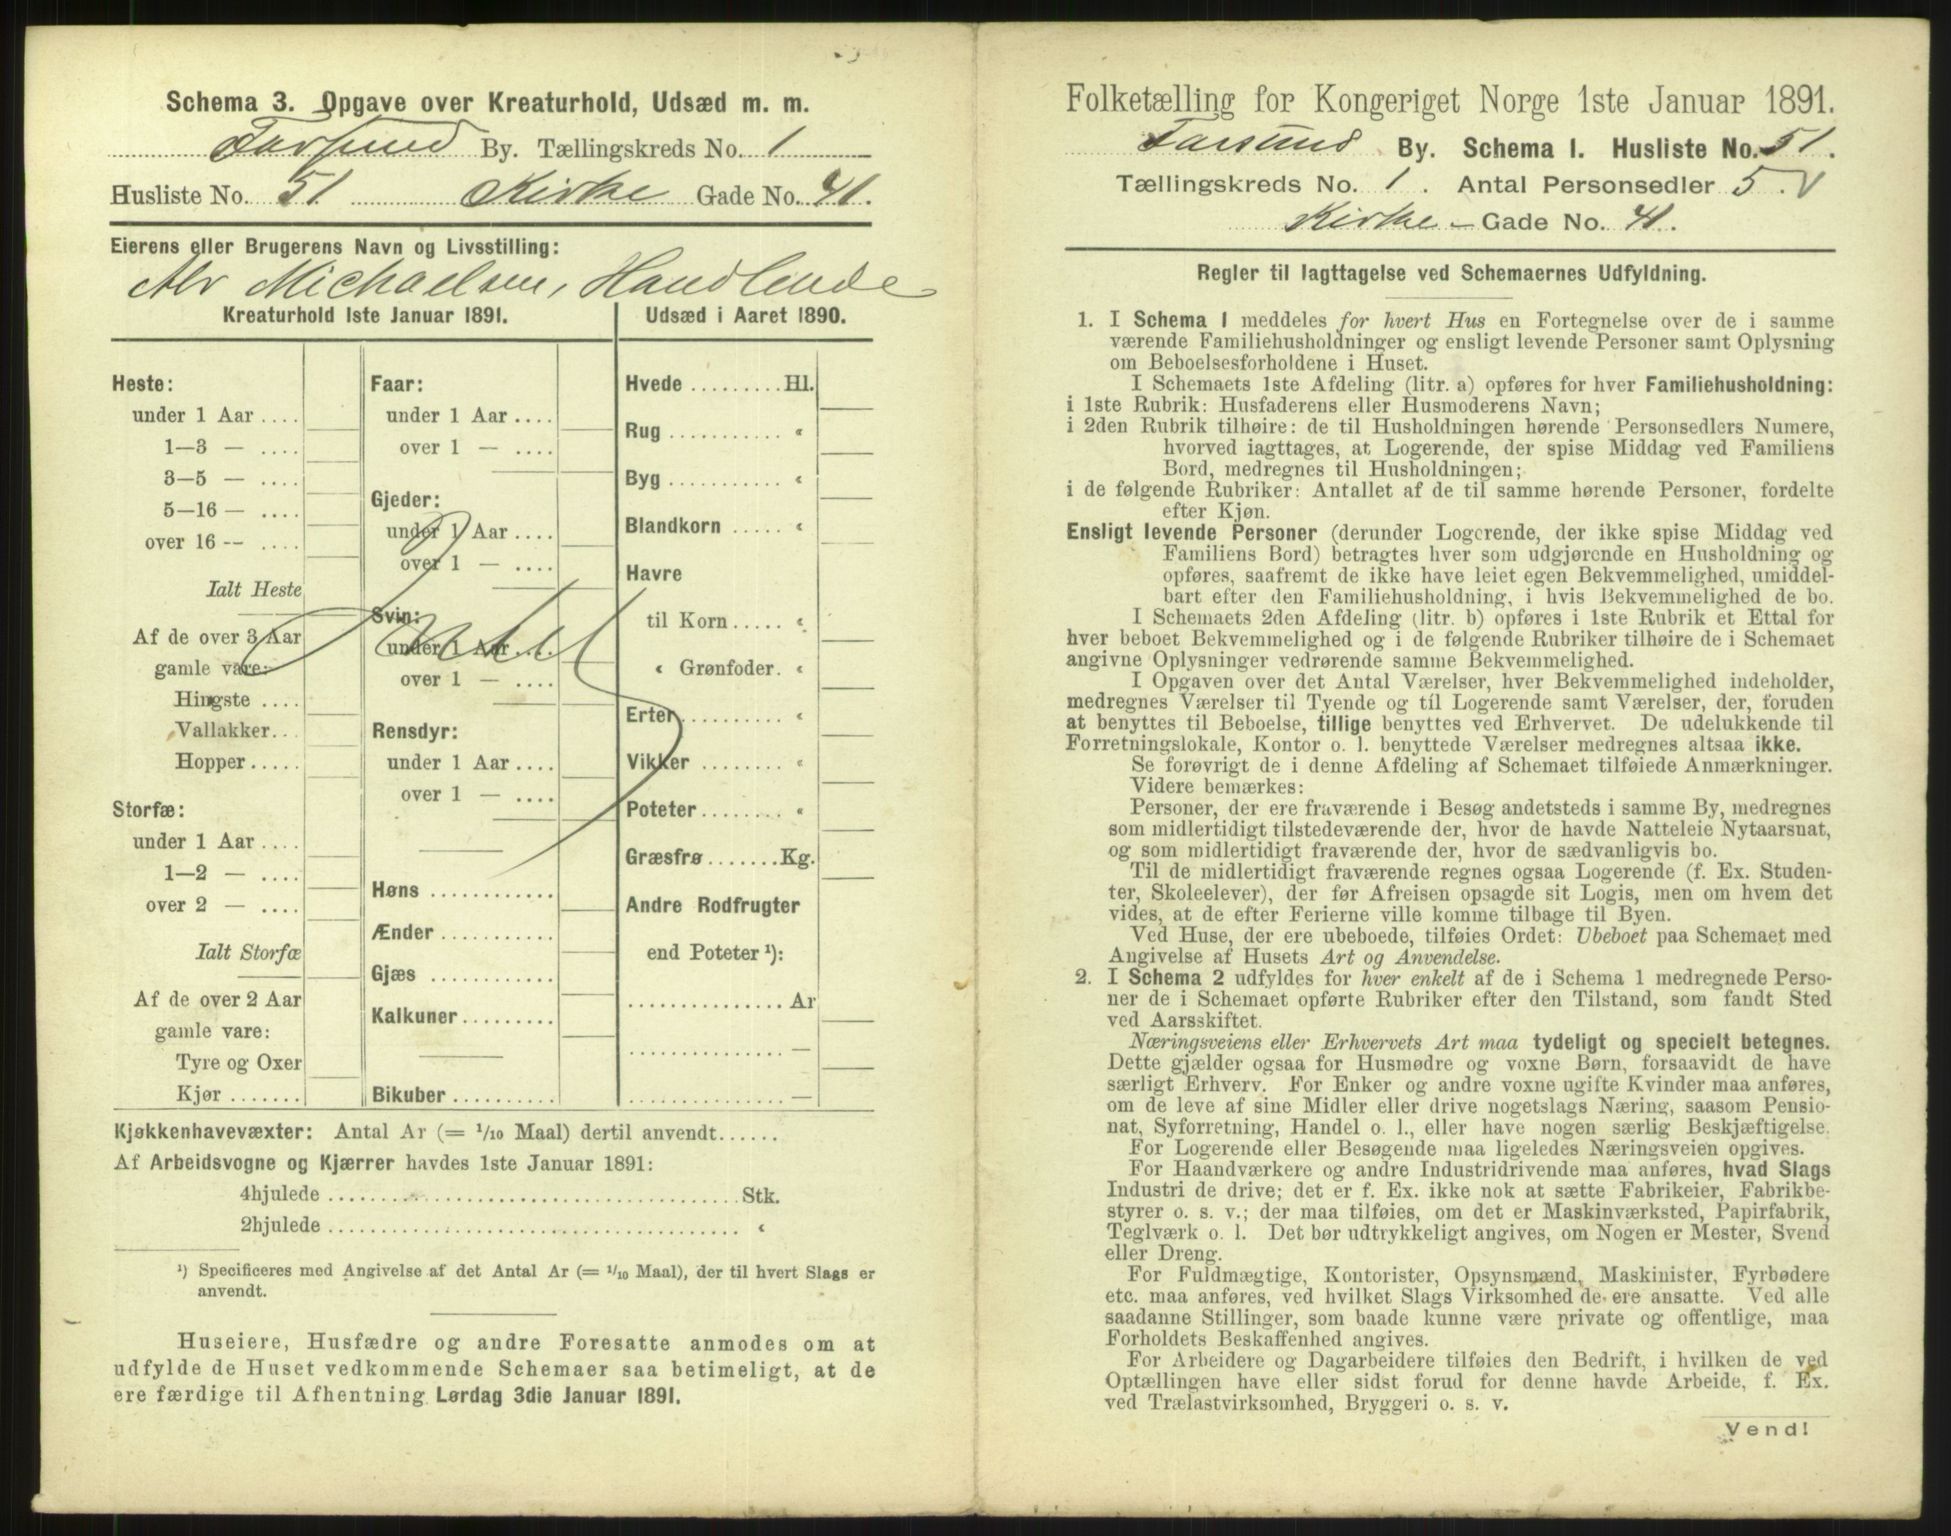 Schema 3. Opgave over Kreaturhold, Udsæd m. m.
Farsund By. Tællingskreds No. 1
Husliste No. 51 Kirke Gade No. 41.
Eierens eller Brugerens Navn og Livsstilling:
Michaelsen, Handlende
Kreaturhold 1ste Januar 1891.
Heste:
under 1 Aar ....
1—3 — ....
3—5 — ....
5—16 — ....
over 16 -- ....
Ialt Heste
Af de over 3 Aar
gamle vare:
Hingste ....
Vallakker...
Hopper.....
Storfæ:
under 1 Aar ....
1—2 — ....
over 2 — ....
Ialt Storfæ
Af de over 2 Aar
gamle vare:
Tyre og Oxer
Kjør .......
Faar:
under 1 Aar ....
over 1 — ....
Gjeder:
under 1 Aar ....
over 1 — ....
Svin:
under 1 Aar ....
over 1 — ....
Rensdyr:
under 1 Aar ....
over 1 — ....
Høns ...........
Ænder ..........
Gjæs ...........
Kalkuner.........
Bikuber .........
Udsæd i Aaret 1890.
Hvede .........Hl.
Rug ........... “
Byg ........... “
Blandkorn ..... “
Havre
til Korn ..... “
“ Grønfoder. “
Erter.......... “
Vikker ........ “
Poteter........ “
Græsfrø .......Kg.
Andre Rodfrugter
end Poteter ¹):
............... Ar
............... —
............... —
Kjøkkenhavevæxter: Antal Ar (= 1/10 Maal) dertil anvendt......
Af Arbeidsvogne og Kjærrer havdes 1ste Januar 1891:
4hjulede ........................................Stk.
2hjulede ........................................ “
¹) Specificeres med Angivelse af det Antal Ar (= 1/10 Maal), der til hvert Slags er
anvendt.
Huseiere, Husfædre og andre Foresatte anmodes om at
udfylde de Huset vedkommende Schemaer saa betimeligt, at de
ere færdige til Afhentning Lørdag 3die Januar 1891.
Folketælling for Kongeriget Norge 1ste Januar 1891.
Farsund By. Schema I. Husliste No. 51.
Tællingskreds No. 1. Antal Personsedler 5.
Kirke - Gade No. 41.
Regler til Iagttagelse ved Schemaernes Udfyldning.
1. I Schema I meddeles for hvert Hus en Fortegnelse over de i samme
værende Familiehusholdninger og ensligt levende Personer samt Oplysning
om Beboelsesforholdene i Huset.
I Schemaets 1ste Afdeling (litr. a) opføres for hver Familiehusholdning:
i 1ste Rubrik: Husfaderens eller Husmoderens Navn;
i 2den Rubrik tilhøire: de til Husholdningen hørende Personsedlers Numere,
hvorved iagttages, at Logerende, der spise Middag ved Familiens
Bord, medregnes til Husholdningen;
i de følgende Rubriker: Antallet af de til samme hørende Personer, fordelte
efter Kjøn.
Ensligt levende Personer (derunder Logerende, der ikke spise Middag ved
Familiens Bord) betragtes hver som udgjørende en Husholdning og
opføres, saafremt de ikke have leiet egen Bekvemmelighed, umiddel-
bart efter den Familiehusholdning, i hvis Bekvemmelighed de bo.
I Schemaets 2den Afdeling (litr. b) opføres i 1ste Rubrik et Ettal for
hver beboet Bekvemmelighed og i de følgende Rubriker tilhøire de i Schemaet
angivne Oplysninger vedrørende samme Bekvemmelighed.
I Opgaven over det Antal Værelser, hver Bekvemmelighed indeholder,
medregnes Værelser til Tyende og til Logerende samt Værelser, der, foruden
at benyttes til Beboelse, tillige benyttes ved Erhvervet. De udelukkende til
Forretningslokale, Kontor o. l. benyttede Værelser medregnes altsaa ikke.
Se forøvrigt de i denne Afdeling af Schemaet tilføiede Anmærkninger.
Videre bemærkes:
Personer, der ere fraværende i Besøg andetsteds i samme By, medregnes
som midlertidigt tilstedeværende der, hvor de havde Natteleie Nytaarsnat,
og som midlertidigt fraværende der, hvor de sædvanligvis bo.
Til de midlertidigt fraværende regnes ogsaa Logerende (f. Ex. Studen-
ter, Skoleelever), der før Afreisen opsagde sit Logis, men om hvem det
vides, at de efter Ferierne ville komme tilbage til Byen.
Ved Huse, der ere ubeboede, tilføies Ordet: Ubeboet paa Schemaet med
Angivelse af Husets Art og Anvendelse.
2. I Schema 2 udfyldes for hver enkelt af de i Schema 1 medregnede Perso-
ner de i Schemaet opførte Rubriker efter den Tilstand, som fandt Sted
ved Aarsskiftet.
Næringsveiens eller Erhvervets Art maa tydeligt og specielt betegnes.
Dette gjælder ogsaa for Husmødre og voxne Børn, forsaavidt de have
særligt Erhverv. For Enker og andre voxne ugifte Kvinder maa anføres,
om de leve af sine Midler eller drive nogetslags Næring, saasom Pensio-
nat, Syforretning, Handel o. l., eller have nogen særlig Beskjæftigelse.
For Logerende eller Besøgende maa ligeledes Næringsveien opgives.
For Haandværkere og andre Industridrivende maa anføres, hvad Slags
Industri de drive; det er f. Ex. ikke nok at sætte Fabrikeier, Fabrikbe-
styrer o. s. v.; der maa tilføies, om det er Maskinværksted, Papirfabrik,
Teglværk o. l. Det bør udtrykkeligt angives, om Nogen er Mester, Svend
eller Dreng.
For Fuldmægtige, Kontorister, Opsynsmænd, Maskinister, Fyrbødere
etc. maa anføres, ved hvilket Slags Virksomhed de ere ansatte. Ved alle
saadanne Stillinger, som baade kunne være private og offentlige, maa
Forholdets Beskaffenhed angives.
For Arbeidere og Dagarbeidere tilføies den Bedrift, i hvilken de ved
Optællingen have eller sidst forud for denne havde Arbeide, f. Ex.
ved Trælastvirksomhed, Bryggeri o. s. v.
Vend!